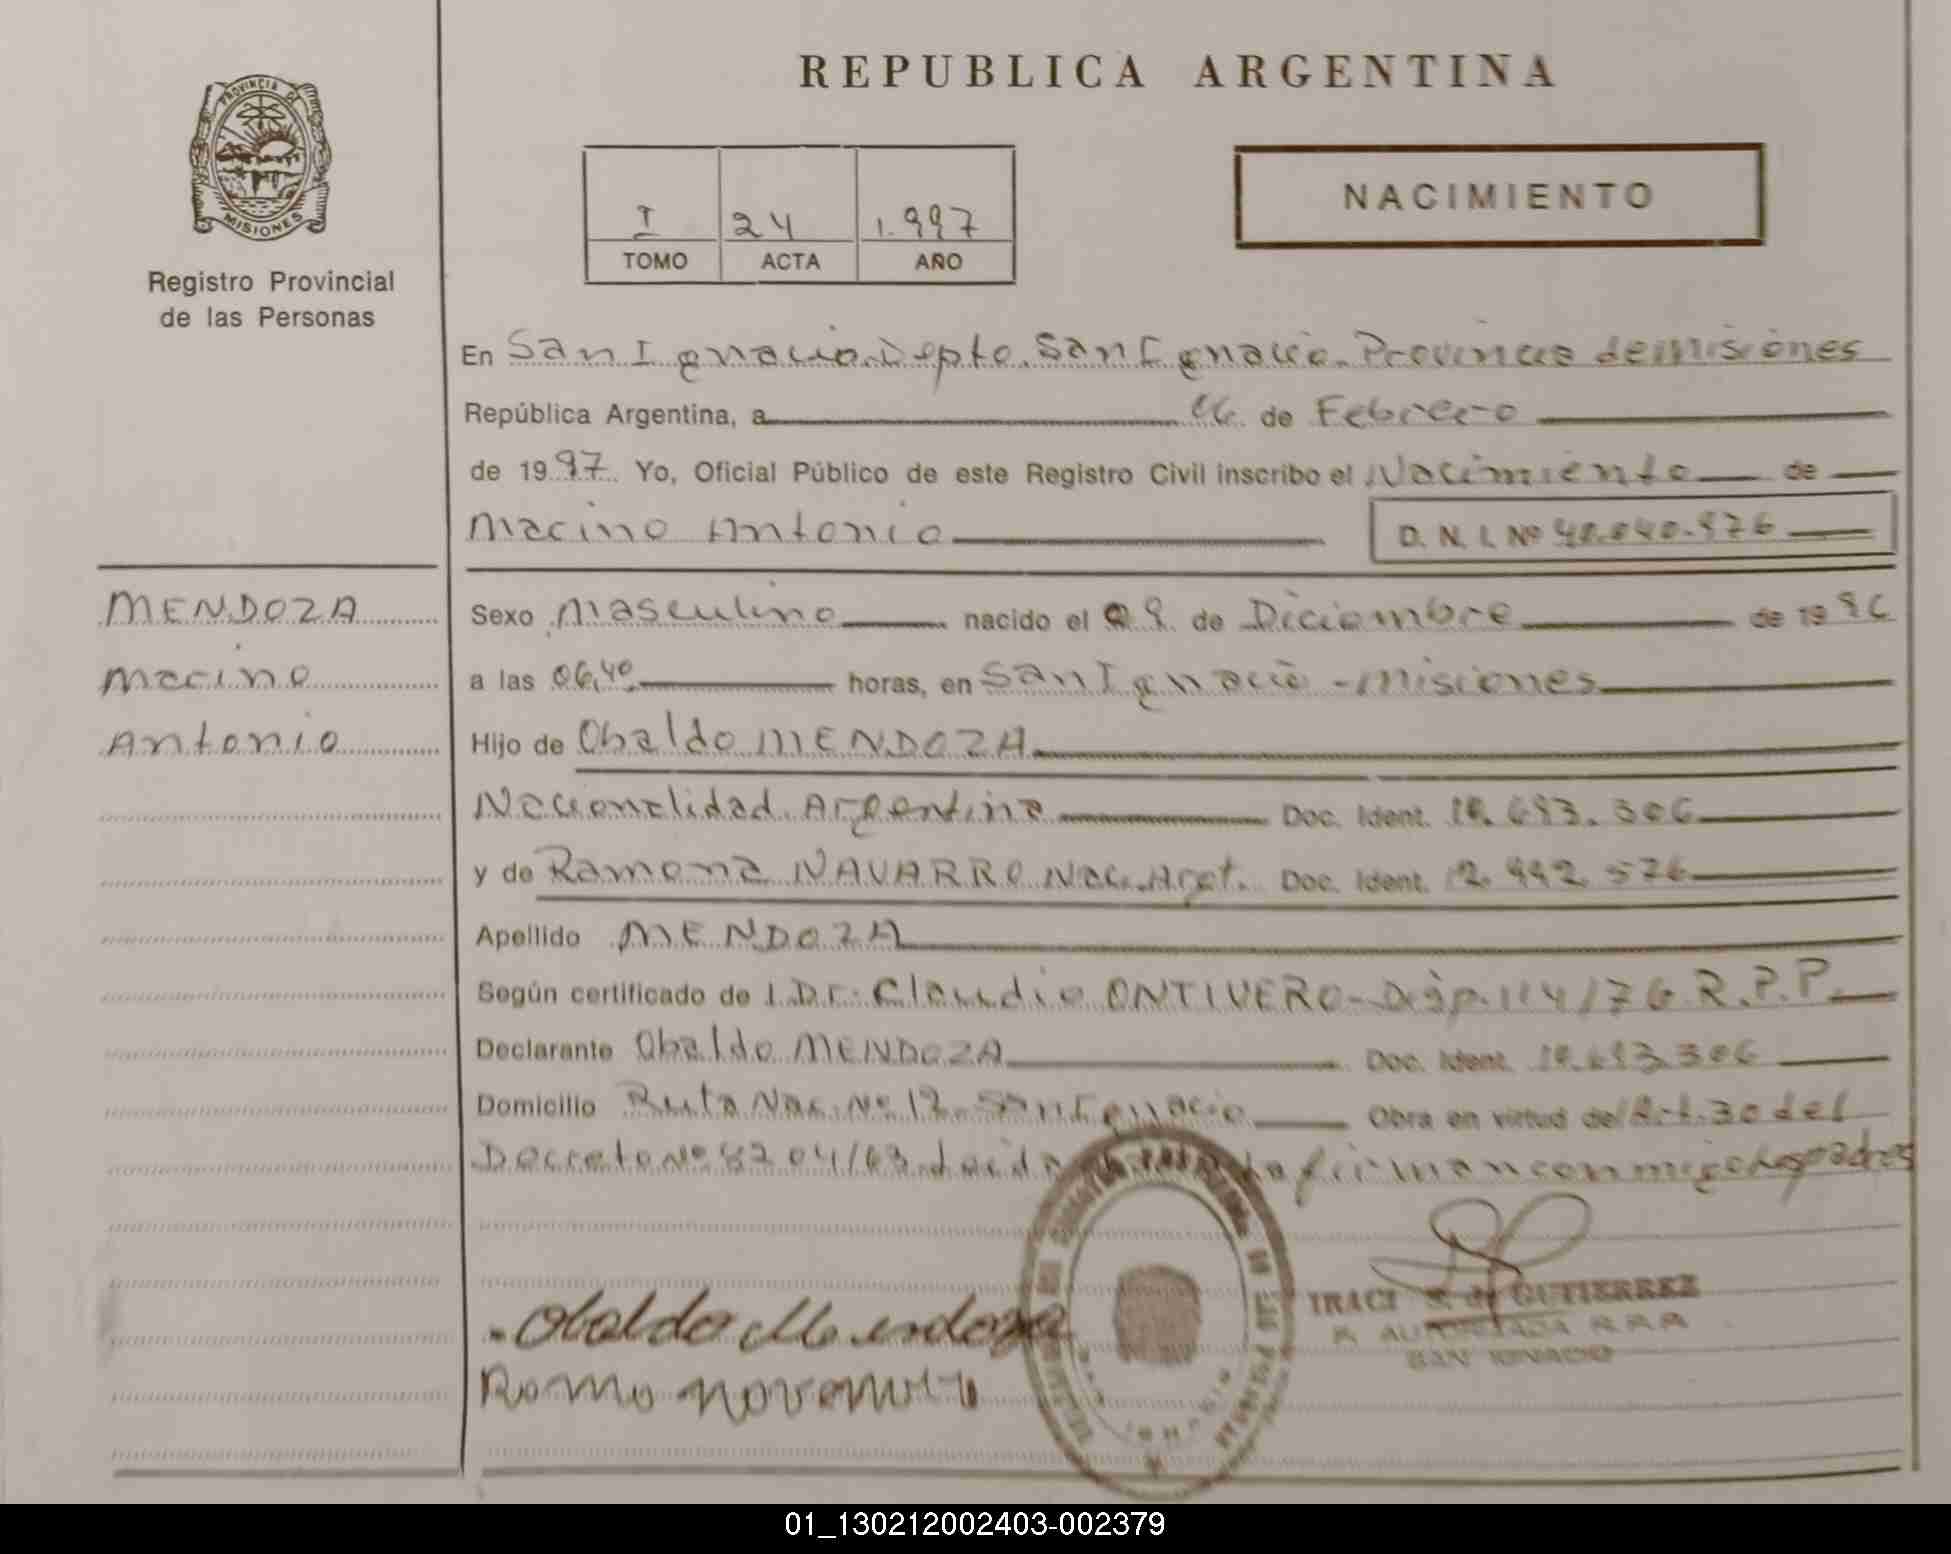 PROVINCIA DE
MISIONES
Registro Provincial
de las Personas
REPUBLICA ARGENTINA
I 24 1.997
TOMO ACTA AÑO
NACIMIENTO
En San Ignacio. Depto. San Ignacio. Provincia de misiones
República Argentina, a de Febrero
de 1997 Yo, Oficial Público de este Registro Civil inscribo el Nacimiento de
Macino Antonio D. N. I. Nº
MENDOZA
Macino
Antonio
Sexo Masculino nacido el de Diciembre de 1996
a las 06,40 horas, en San Ignacio - misiones
Hijo de Obaldo MENDOZA
Nacionalidad Argentina Doc. Ident. 306
y de Ramona NAVARRO Nac. Argt. Doc. Ident. 576
Apellido MENDOZA
Según certificado de Dr. Claudio ONTIVERO - Disp. 114/76 R.P.P.
Declarante Obaldo MENDOZA Doc. Ident. 306
Domicilio Ruta Nac. Nº 12 San Ignacio Obra en virtud del Art. 30 del
Decreto Nº 8204/63 firman conmigo los padres
Obaldo Mendoza
IRACI de GUTIERREZ
AUTORIZADA
SAN IGNACIO
01_130212002403-002379